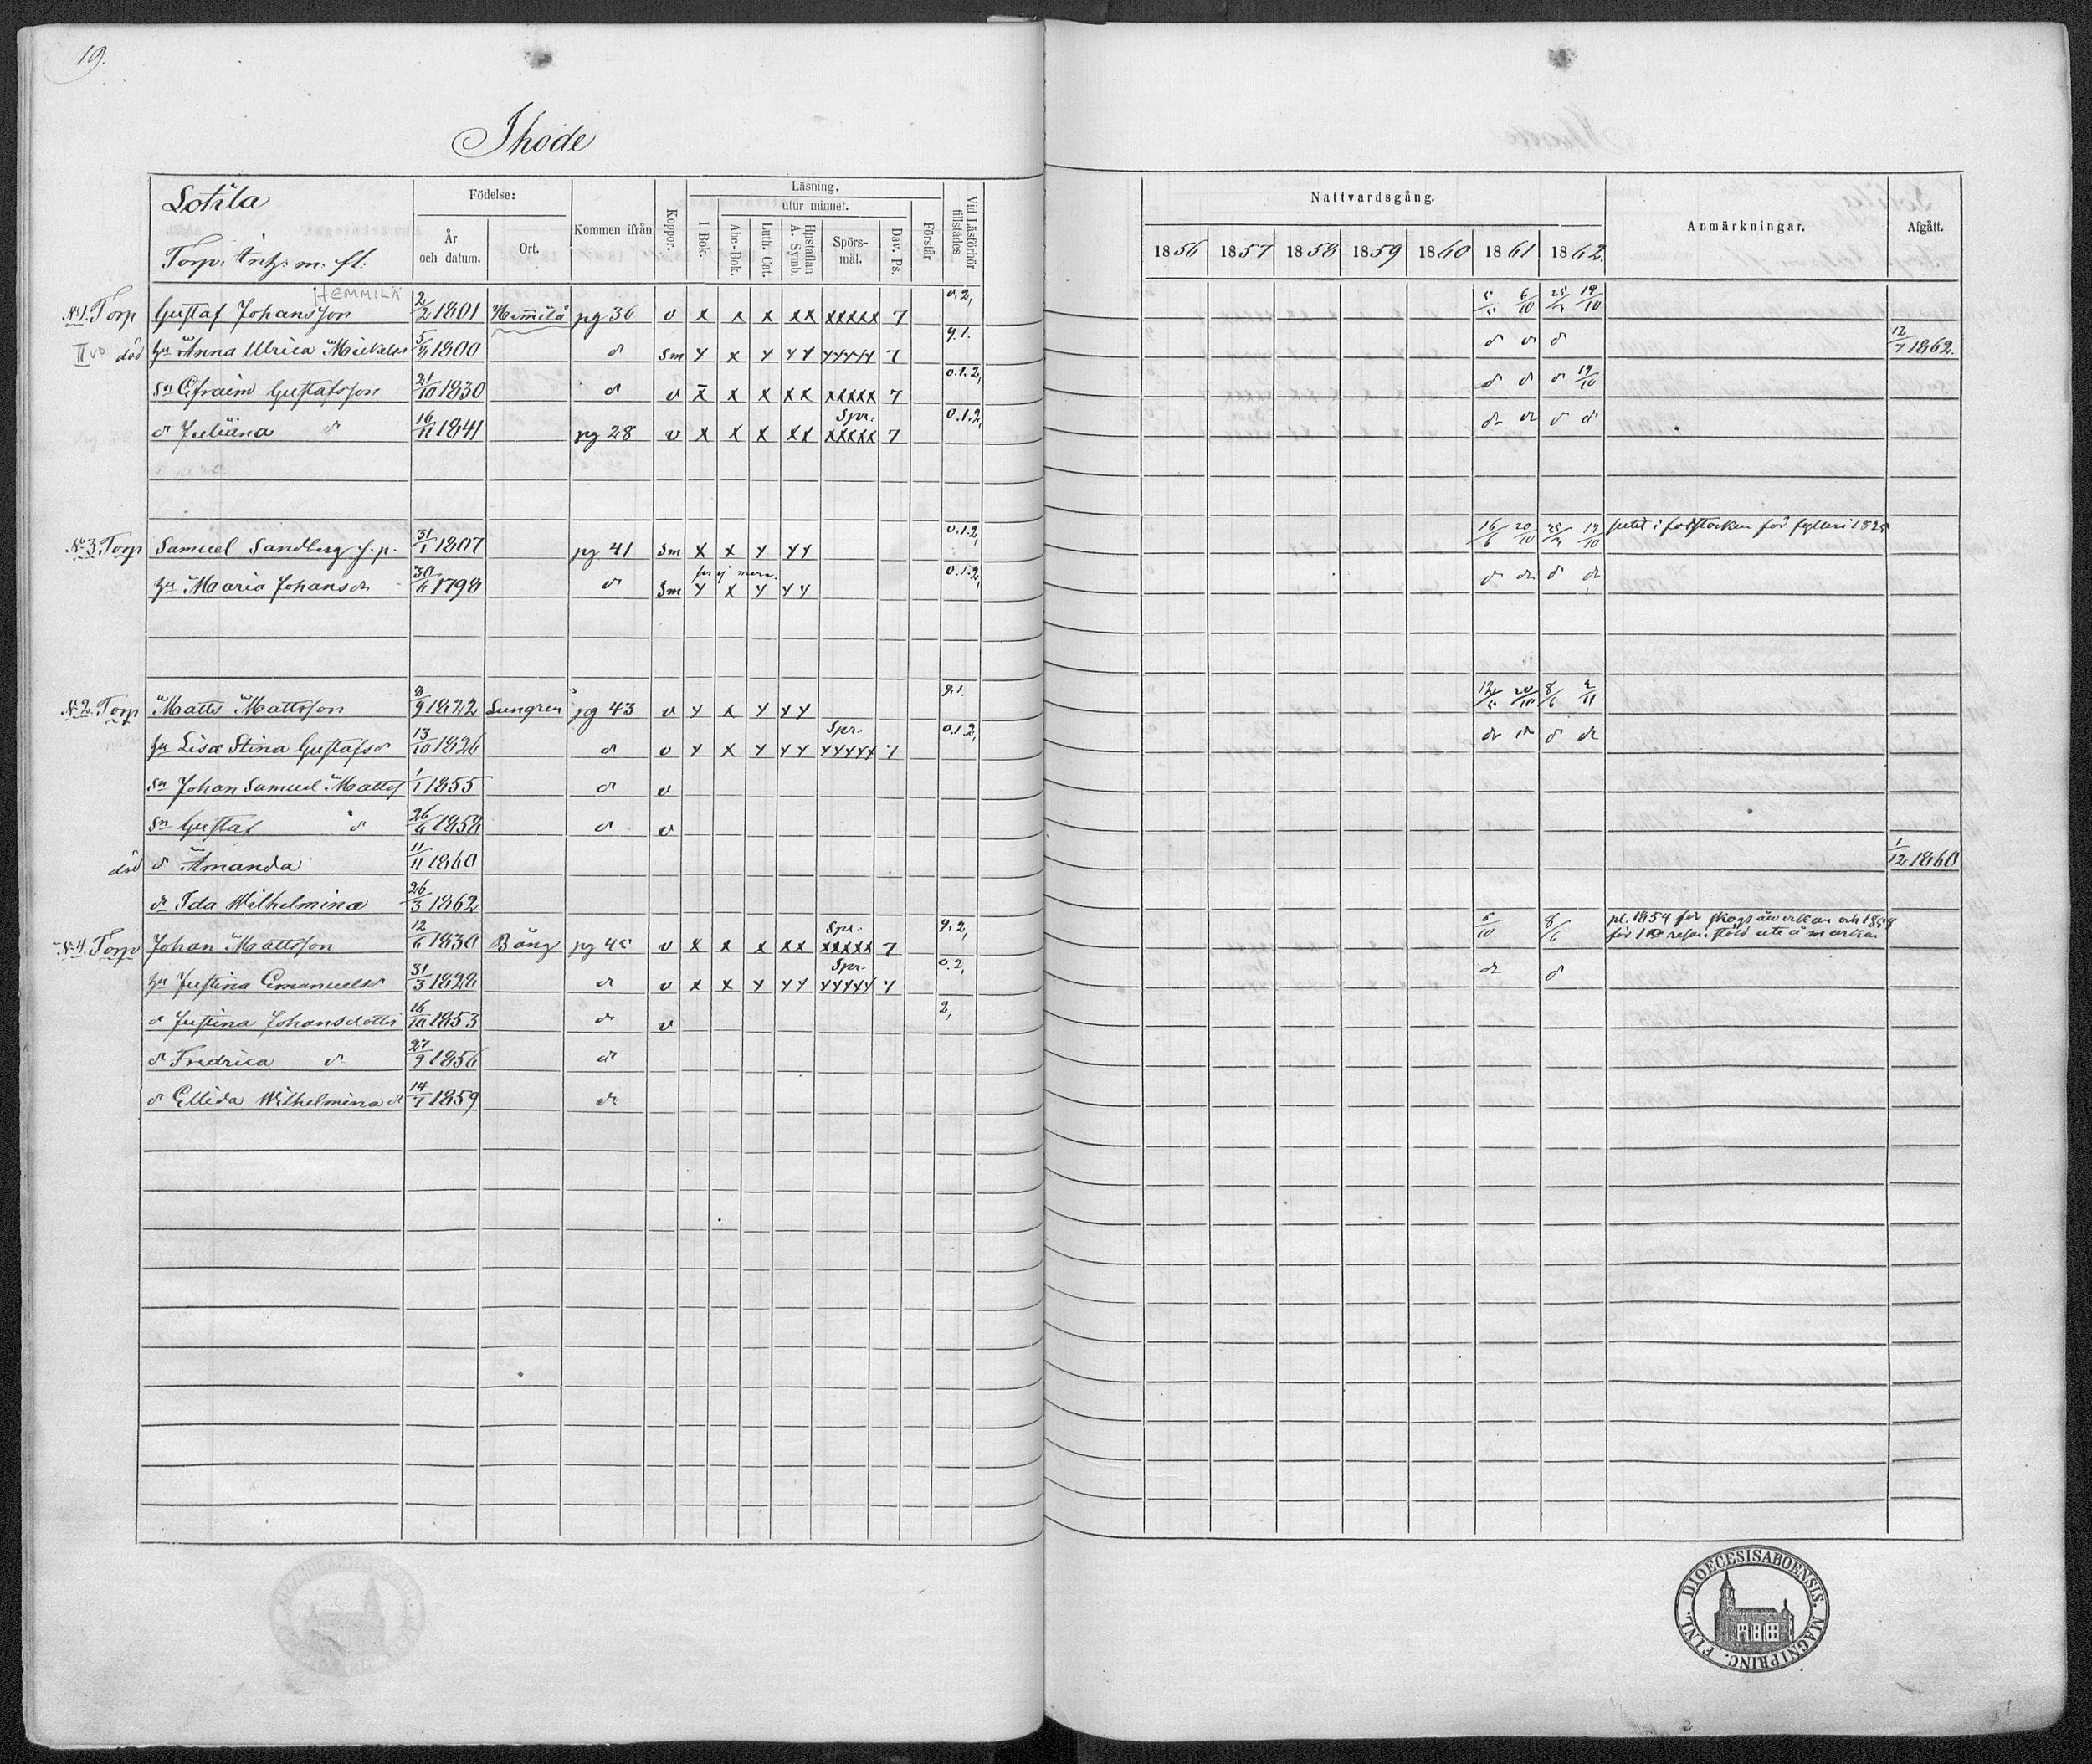 19.
Ihode
Lotila
Torp. Intz. m. fl.
Födelse:
År och datum.
Ort.
Kommen ifrån
Koppor.
Läsning,
utur minnet.
I Bok.
Abc-Bok.
Luth. Cat.
Hustaflan A. Symb.
Spörs-mål.
Dav. Ps.
Förstår
Vid Läsförhör tillstädes
Nattvardsgång.
1856 1857 1858 1859 1860 1861 1862.
Anmärkningar.
Afgått.
HEMMILÄ
No 1. Torp Gustaf Johansson 2/2 1801 Hemmilä pg 36 v x x x xx xxxxx 7 0.2, 6/10 19/10
död hu Anna Ulrica Mickels 1800 d sm y x y yy yyyyy 7 9.1. 12/7 1862.
sn Efraim Gustafsson 21/10 1830 d v x x x xx xxxxx 7 0.1.2, 19/10
d Juliana d 16/11 1841 pg 28 v x x x xx Spr. xxxxx 7 0.1.2,
No 3. Torp Samuel Sandberg f.p. 31/1 1807 pg 41 sm x x y yy 0.1.2, 16/6 20/10 19/10 sutit i fotstocken för fylleri 1825
hu Maria Johansdr 1798 d sm y x y yy 0.1.2,
No 2. Torp Matts Mattsson 9/9 1822 Lungren pg 43 v y x y yy 9.1. 20/10 8/6 2/11
hu Lisa Stina Gustafsd 13/10 1826 d v y x y yy Spr. yyyyy 7 0.1 2,
sn Johan Samuel Matts 1/1 1855 d v
sn Gustaf d 26/6 1858 d v
död d Amanda 11/11 1860 1/12 1860
dr Ida Wilhelmina 26/3 1862
No 4. Torp Johan Mattsson 12/6 1830 Bång pg 45 v x x x xx Spr. xxxxx 7 9.2, 8/6 pl. 1854 för skogsåverkan och 1858
för 1sta resan stöld ute å marken
hu Justina Emanuelsd 31/3 1828 d v x x y yy Spr. yyyyy 7 0.2,
d Justina Johansdotter 16/10 1853 d v 2,
d Fredrica d 27/9 1856 d
d Ellida Wilhelmina d 14/7 1859 d
DIOECESIS ABOENSIS. MAGNI PRINC. FINL.